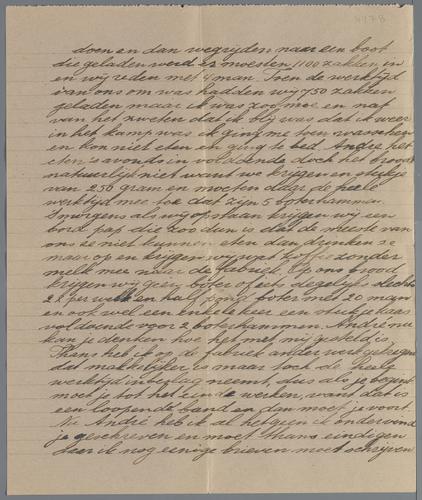 doen en dan wegrijden naar een boot
die geladen werd er moesten 1100 zakken in
en wij reden met 4 man. Toen de werktijd
van ons om was hadden wij 750 zakken
geladen maar ik was zoo moe en naf
van het zweten dat ik blij was dat ik weer
in het kamp was ik ging me toen wasschen
en kon niet eten en ging te bed. André het
eten 's avonds is voldoende doch het brood
natuurlijk niet want we krijgen en stukje
van 250 gram en moeten daar de heele
werktijd mee toe dat zijn 5 boterhammen.
Smorgens als wij opstaan krijgen wij een
bord pap die zoo dun is dat de meeste van
ons ze niet kunnen eten dan drinken ze
maar op en krijgen wij wat koffie zonder
melk mee naar de fabriek. Op ons brood
krijgen wij geen bijter of ech degelijks slechts
2 x per week en half pond boter met 20 man
en ook wel een enkele keer een stukje kaas
voldoende voor 2 boterhammen. André nu
kan je denken hoe het met mij gesteld is
Thans heb ik in de fabriek ander werk gekregen
dat makkelijker is maar toch de heele
werktijd in beslag neemt, dus als je begint
moet je tot het einde werken, want dat is
een loopende band en dan moet je voort.
Nu André heb ik al hetgeen ik ondervond
je geschreven en moet thans eindigen
daar ik nog eenige brieven moet schrijven